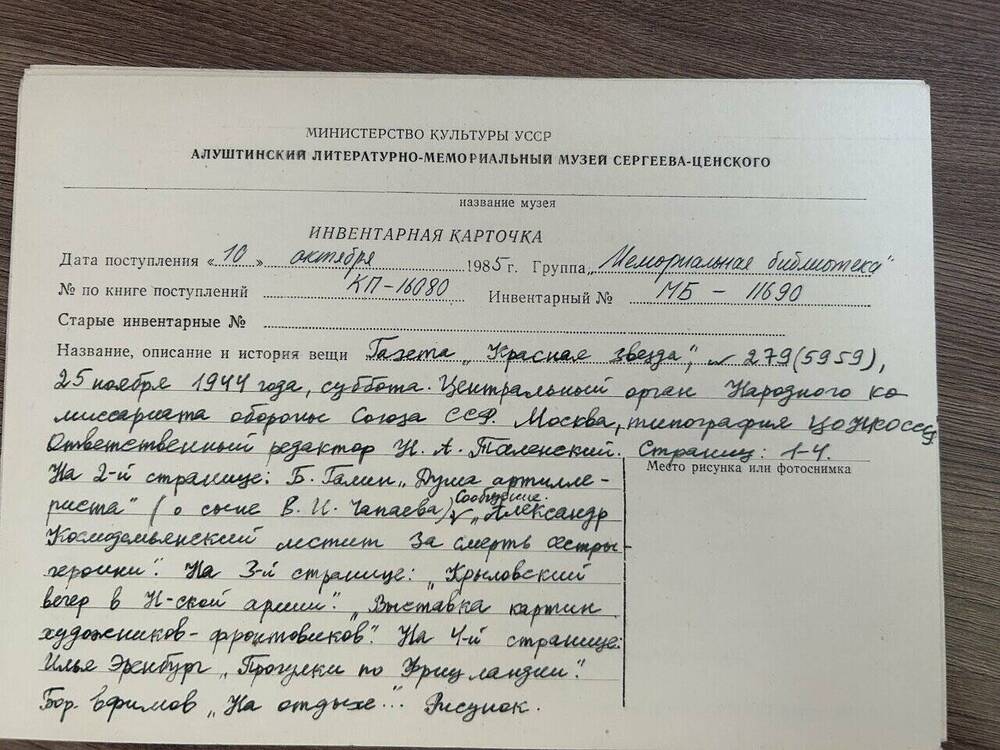 МИНИСТЕРСТВО КУЛЬТУРЫ УССР
АЛУШТИНСКИЙ ЛИТЕРАТУРНО-МЕМОРИАЛЬНЫЙ МУЗЕЙ СЕРГЕЕВА-ЦЕНСКОГО
название музея
ИНВЕНТАРНАЯ КАРТОЧКА
Дата поступления «10» октября 1985 г. Группа „Мемориальная библиотека"
№ по книге поступлений КП-16080 Инвентарный № МБ - 11690
Старые инвентарные №
Название, описание и история вещи Газета „Красная звезда", № 279(5959),
25 ноября 1944 года, суббота. Центральный орган Народного ко
миссариата обороны Союза ССР. Москва, типография
Ответственный редактор Н. А. Таленский. Страниц: 1-4.
Место рисунка или фотоснимка
На 2-й странице: Б. Галин „Душа артилле-
риста" (о сыне В. И. Чапаева) Сообщение. „Александр
Космодемьянский мстит за смерть сестры-
героини". На 3-й странице: „Крыловский
вечер в Н-ской армии". „Выставка картин
художников-фронтовиков". На 4-й странице:
Илья Эренбург „Прогулки по Фрицландии".
Бор. Ефимов „На отдыхе..." Рисунок.